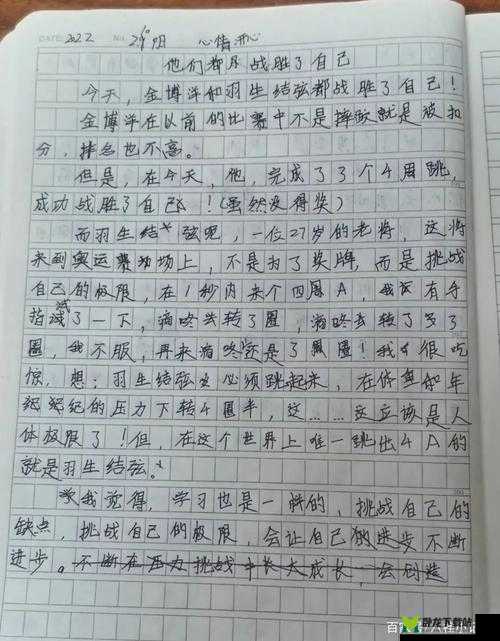 DATE 2022 No. 2.9 阳 心情 开心
他们都是战胜了自己
今天，金博洋和羽生结弦都战胜了自己！
金博洋在以前的比赛中不是摔跤就是被扣
分，排名也不高。
但是，在今天，他，完成了3个4周跳，
成功战胜了自己！(虽然没得奖)
而羽生结弦呢，一位27岁的老将，这将
来到奥运赛场上，不是为了奖牌，而是挑战
自己的极限，在1秒内来个四周A，我试有手
指试了一下，滴咚去转了圈，滴咚去转了多了
圈，我不服，再来滴咚还是了圈！我很吃
惊，想：羽生结弦必须跳起来，在体重和年
纪的压力下转4圈半，这……这应该是人
体极限了！但，在这个世界上唯一跳出4A的
就是羽生结弦。
我觉得，学习也是一样的，挑战自己的
缺点，挑战自己的极限，会让自己的进步不断
进步。不断在压力挑战中长大成长，会创造
百家号/
卧龙下载站